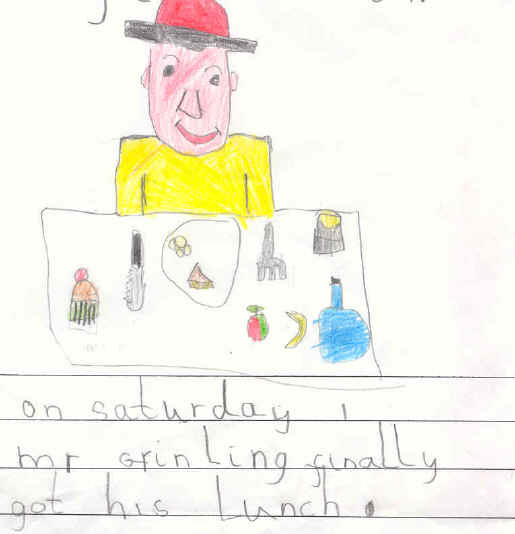 on saturday ,
mr grinling finally
got his lunch.